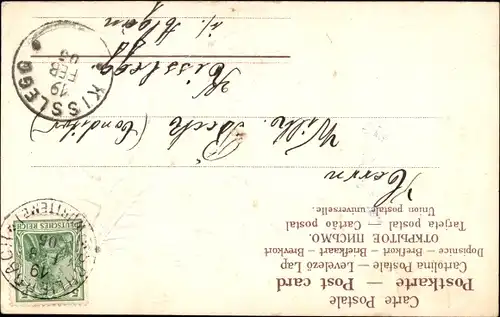 Carte Postale
Postkarte — Post card
Cartolina Postale — Levelező Lap
Dopisnice — Brefkort — Briefkaart — Brevkort
ОТКРЫТОЕ ПИСЬМО.
Tarjeta postal — Cartão postal
Union postale universelle.
Herrn
Wilh. (Conditor)
Kisslegg
i/ Algäu
KISSLEGG
19
FEB
06
DEUTSCHES REICH
19